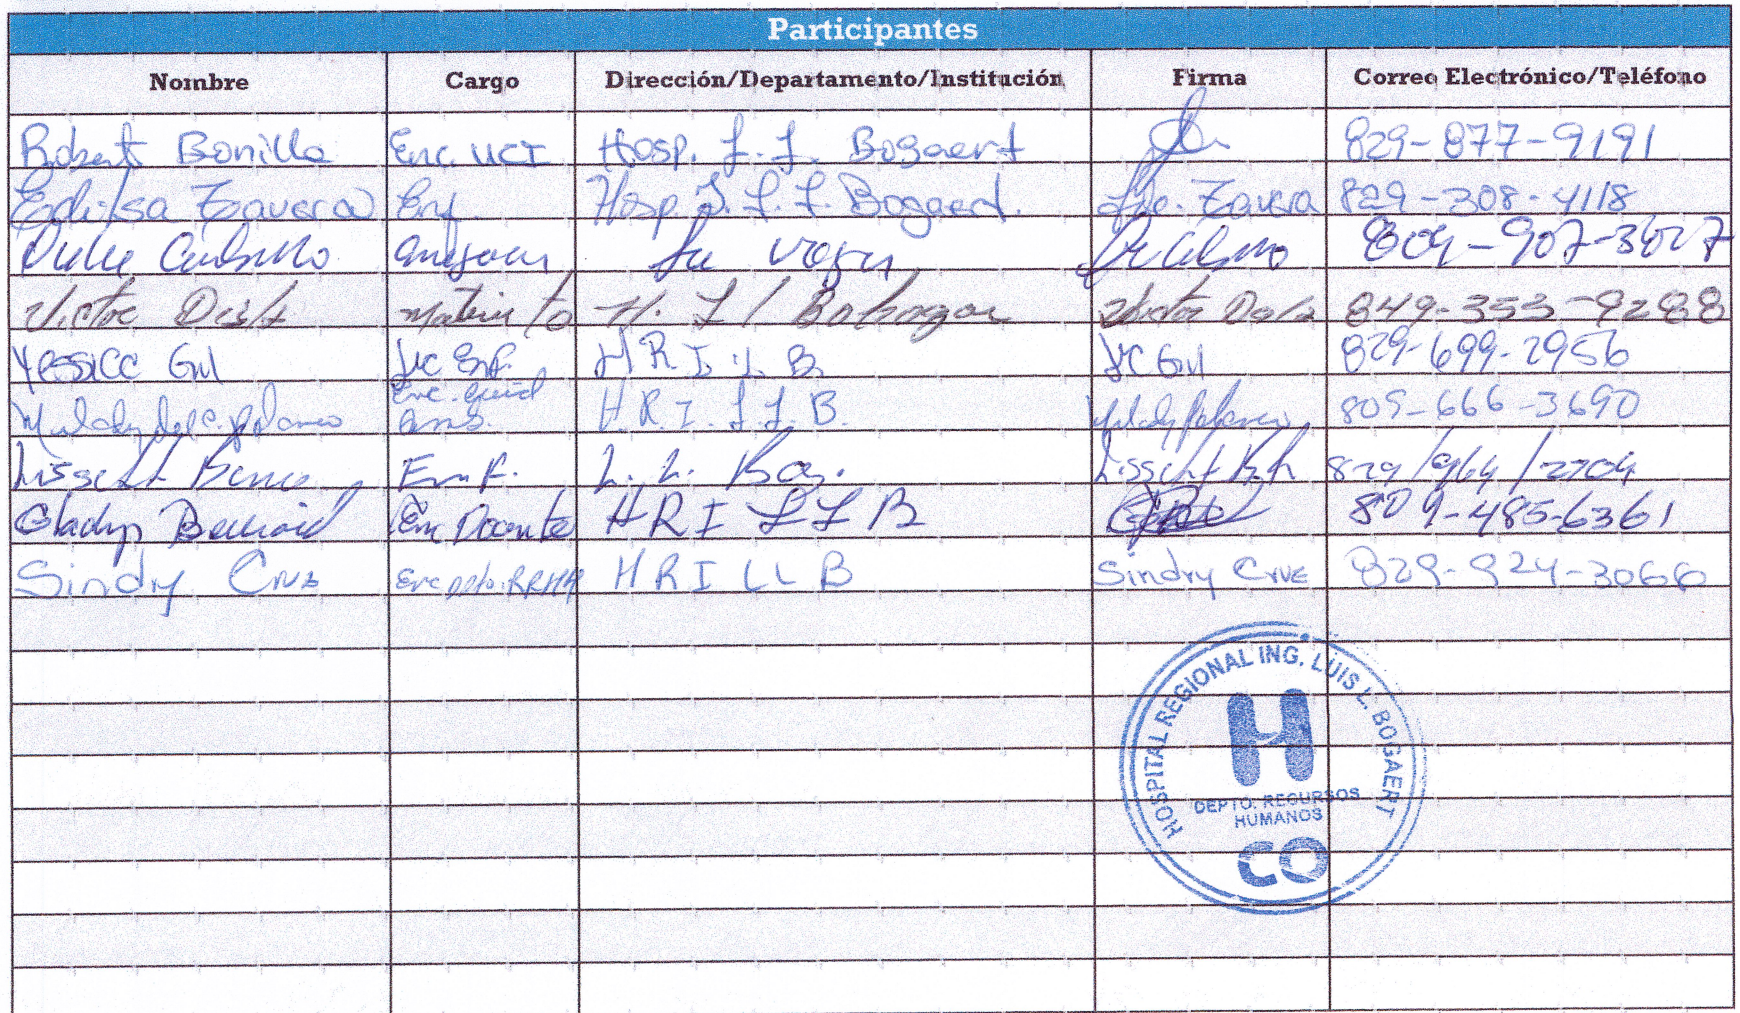 Participantes
Nombre Cargo Dirección/Departamento/Institución Firma Correo Electrónico/Teléfono
Robert Bonilla Enc. UCI Hosp. L. L. Bogaert 829-877-9191
Zavera Enf. Hosp. I. L. L. Bogaert. Zavera 829-308-4118
La Vega
Victor H. L 849-353-9288
Yessicc Gil Lic Enf. H R I. L. B. Lic Gil 829-699-2956
H. R. I. L. L. B. 809-666-3690
Lissett Enf. L. L. Bog. Lissett 829/964/2204
Gladys Enc Docente H R I L L B 809-485-6361
Sindry Cruz Enc Dpto. RRHH H R I L L B Sindry Cruz 829-924-3066
HOSPITAL REGIONAL ING. LUIS L. BOGAERT
H
DEPTO. RECURSOS
HUMANOS
CO